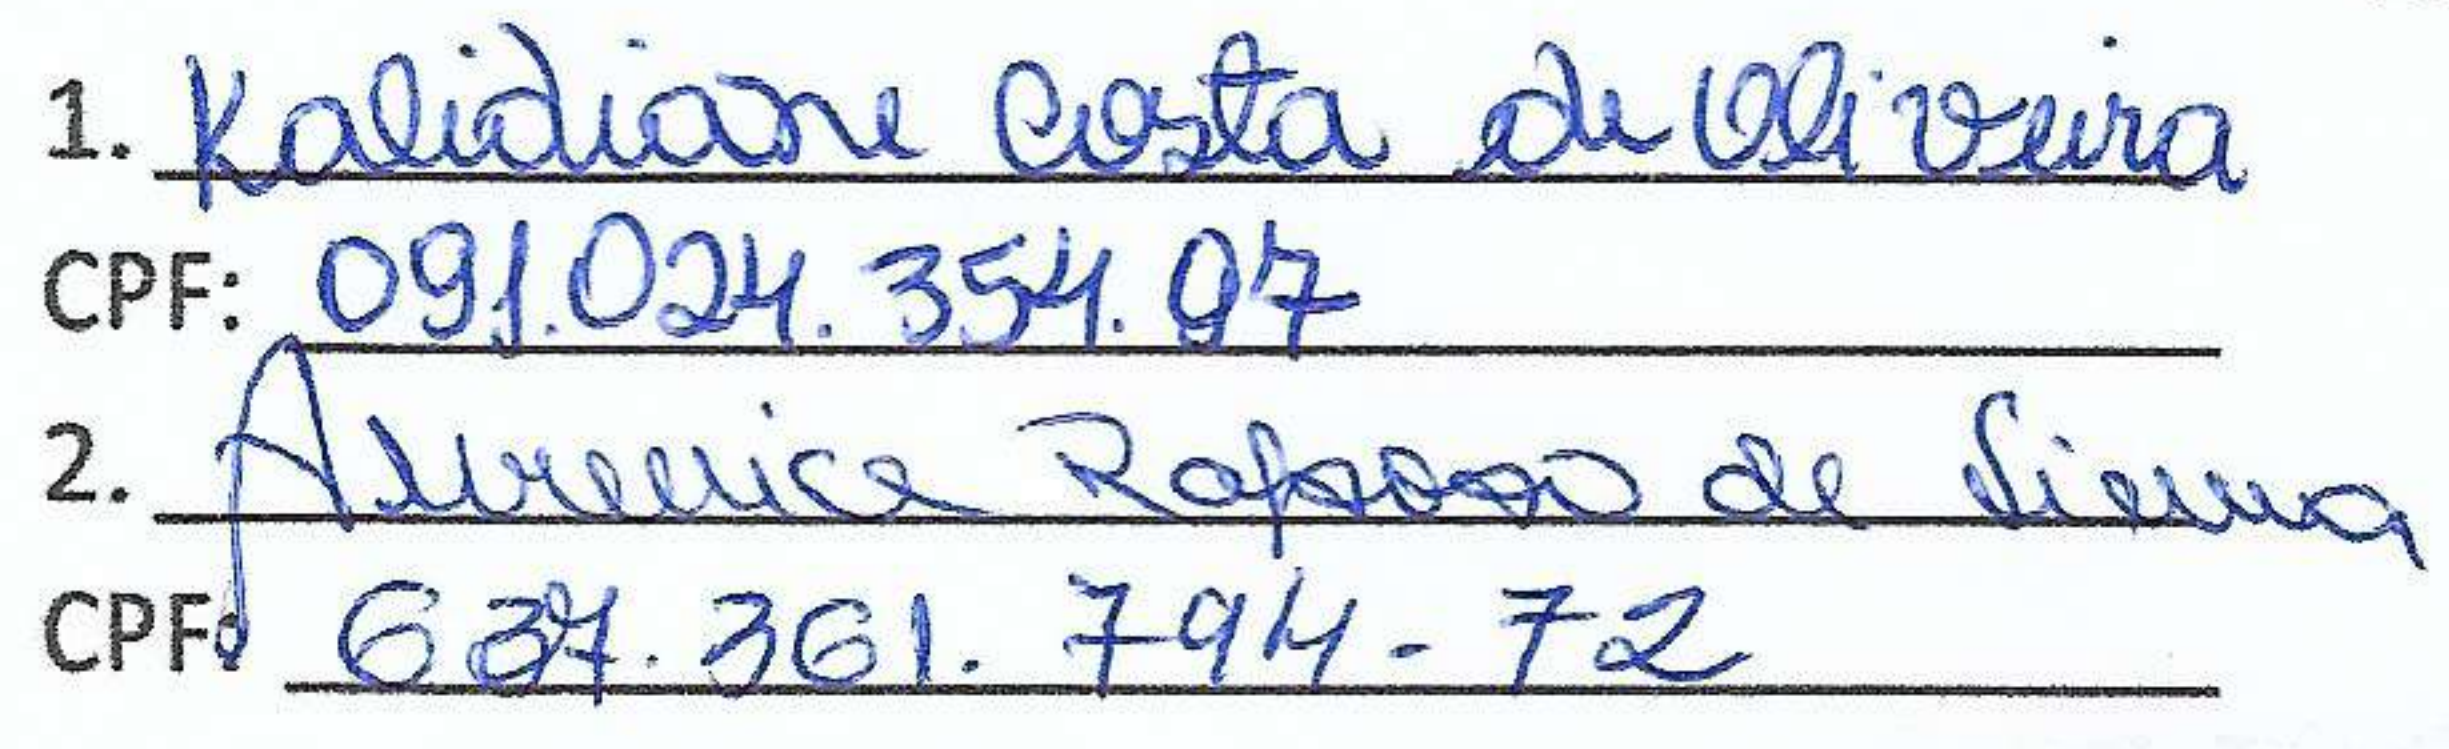 1. Kalidiane Costa de Oliveira
CPF: 091.024.354.97
2. Aurenice Raposo de
CPF: 637.361.794-72